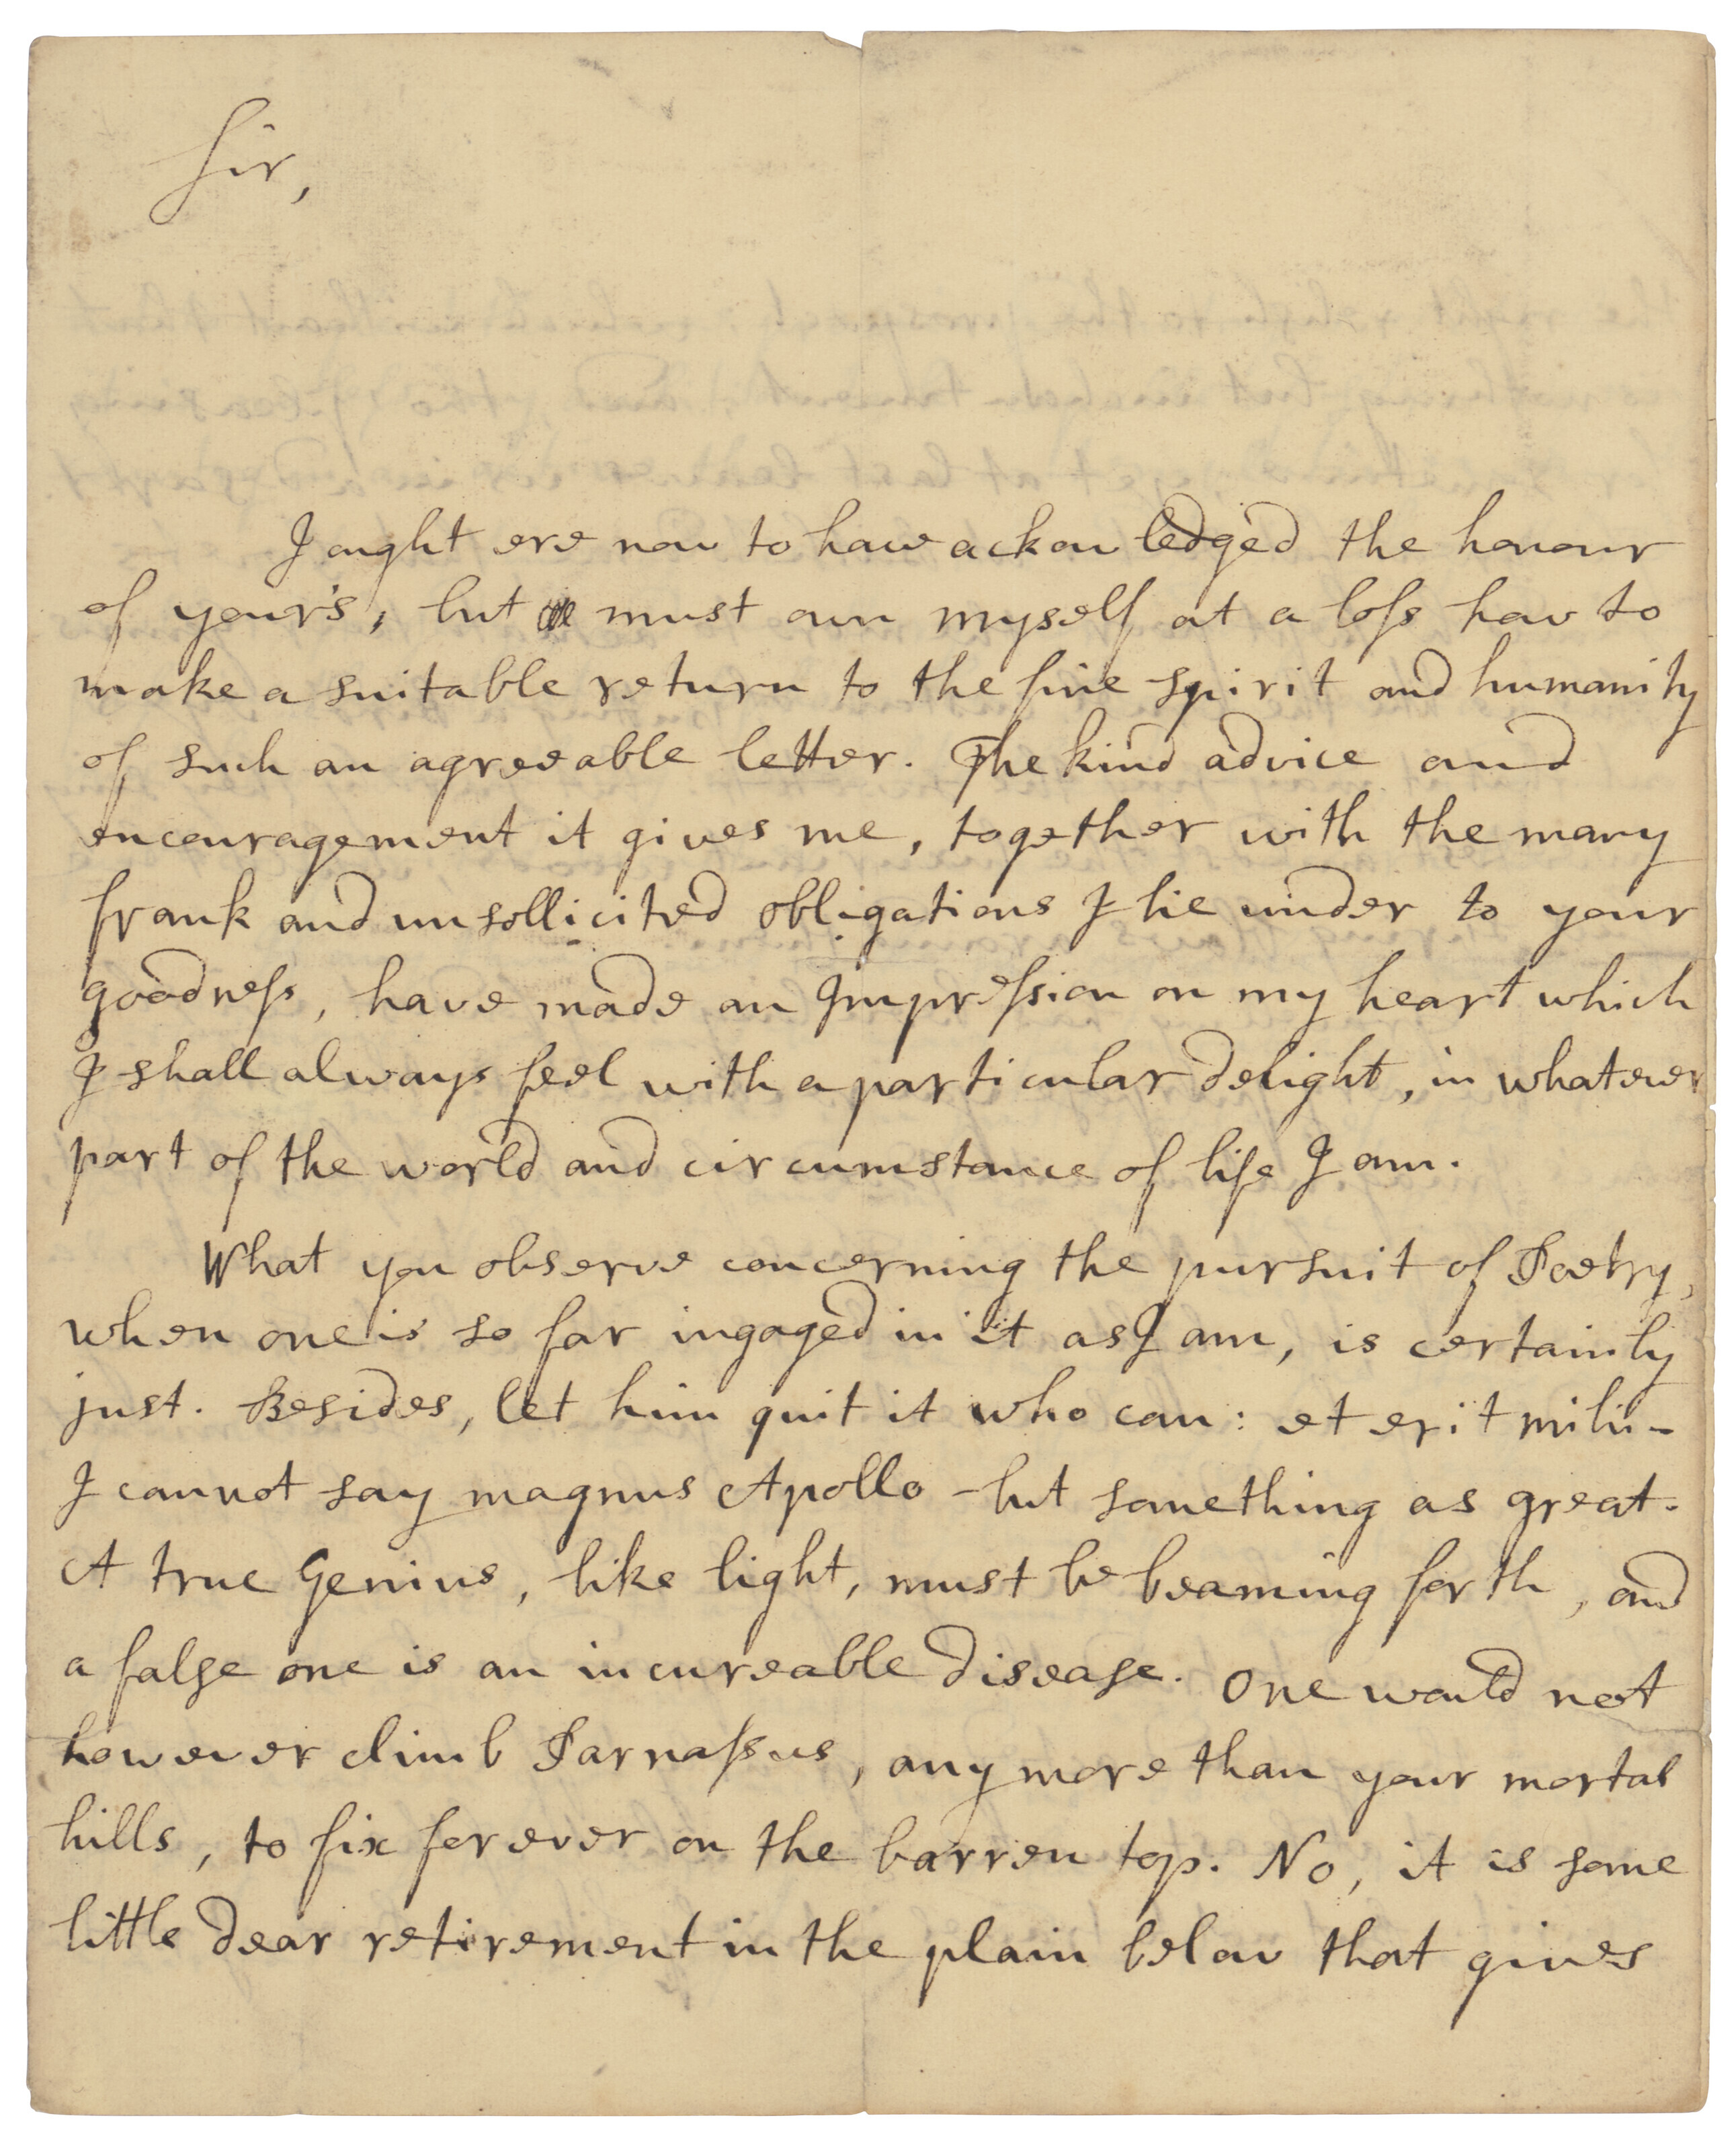 Sir,
I ought ere now to have ackowledged the honour
of your's, but must own myself at a loss how to
make a suitable return to the fine spirit and humanity
of such an agreeable letter. The kind advice and
encouragement it gives me, together with the many
frank and unsollicited obligations I lie under to your
goodness, have made an Impression on my heart which
I shall always feel with a particular delight, in whatever
part of the world and circumstance of life I am.
What you observe concerning the pursuit of Poetry,
when one is so far ingaged in it as I am, is certainly
just. Besides, let him quit it who can: et erit mihi -
I cannot say magnus Apollo - but something as great.
A true Genius, like light, must be beaming forth, and
a false one is an incureable disease. One would not
however climb Parnassus, any more than your mortal
hills, to fix forever on the barren top. No, it is some
little dear retirement in the plain below that gives